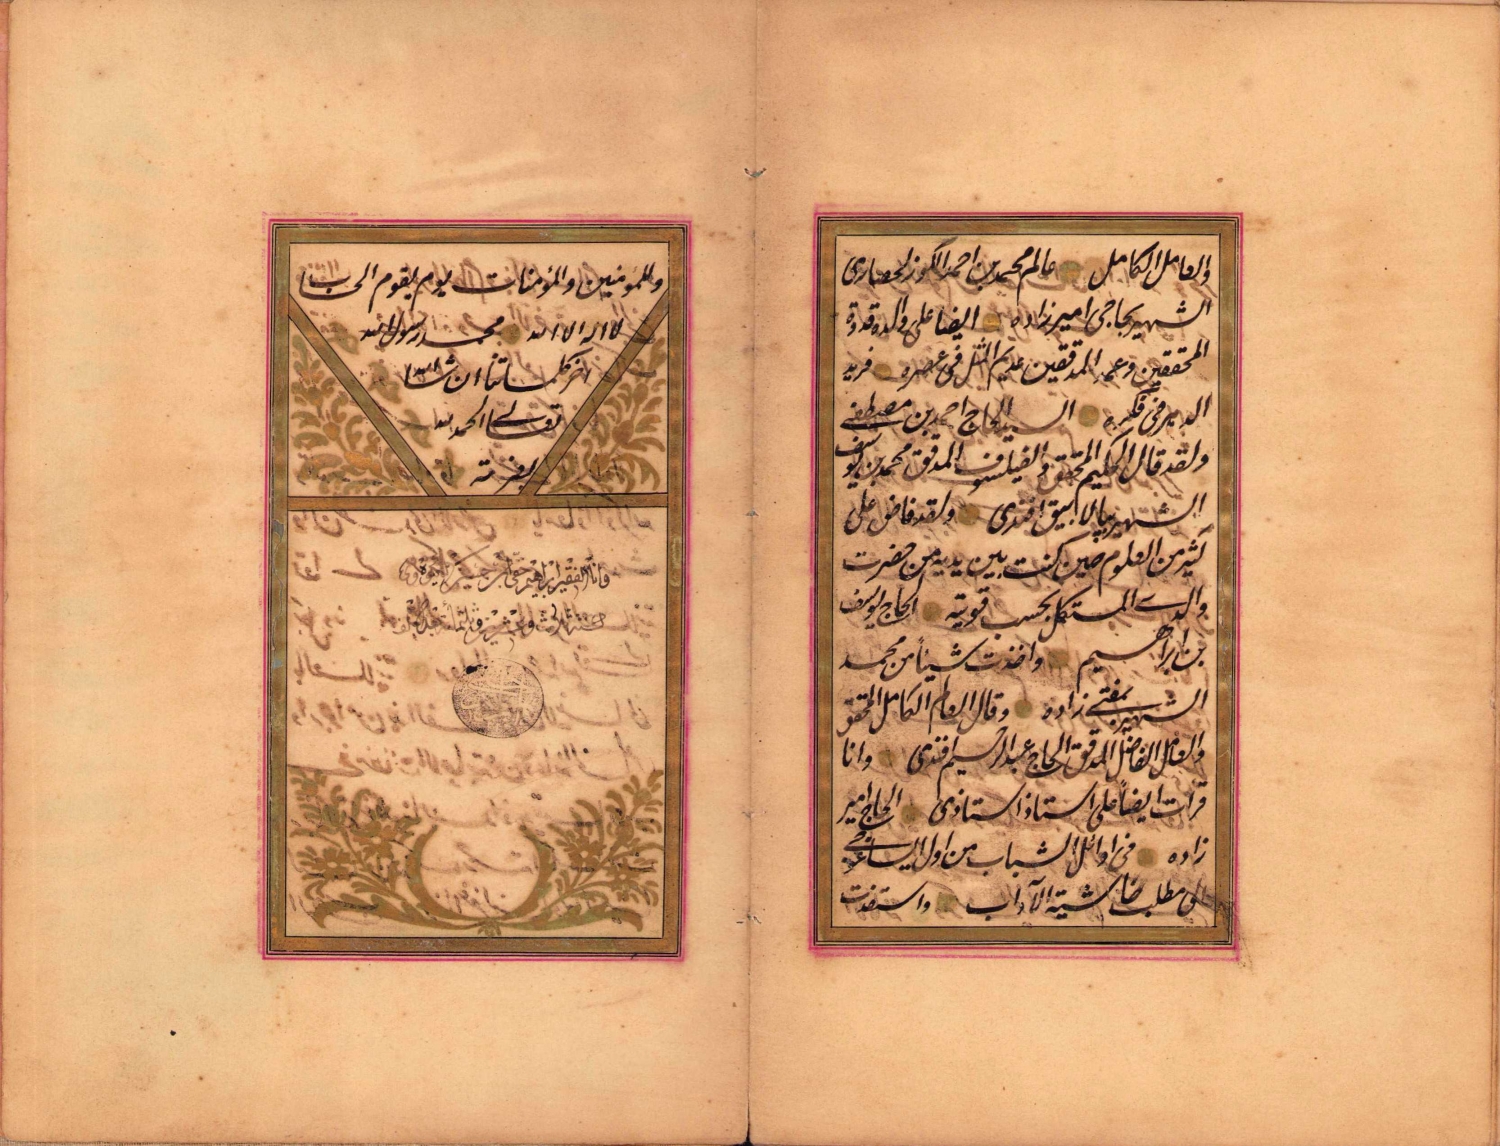 والعامل الكامل عالم محمد بن احمد الكوزلحصاري
الشهير بحاجي امير زاده ايضا على والده قدوة
المحققين وعمدة المدققين عديم المثل في عصره فريد
الدهر في فكره السيد الحاج احمد بن مصطفى
ولقد قال الحكيم المحقق والفيلسوف المدقق محمد بن يوسف
الشهير افندى ولقد فاض على
كثير من العلوم حين كنت بين يديه من حضرت
والدى المستكمل بحسب قوتيه الحاج يوسف
بن ابراهيم واخذت شيئاً من محمد
الشهير بمفتى زاده وقال العالم الكامل المحقق
والعامل الفاضل المدقق الحاج عبد الرحيم افندى وانا
قرأت ايضاً على استاذ استاذى الحاج امير
زاده فى اوائل الشباب من اول
الى مطلب حاشية الآداب واستفدت
وللمؤمنين والمؤمنات يوم يقوم الحساب
لا اله الا الله محمد رسول الله
آخر كلماتنا ان شاء الله
تعالى الحمد لله
وانا الفقير ابراهيم حقى